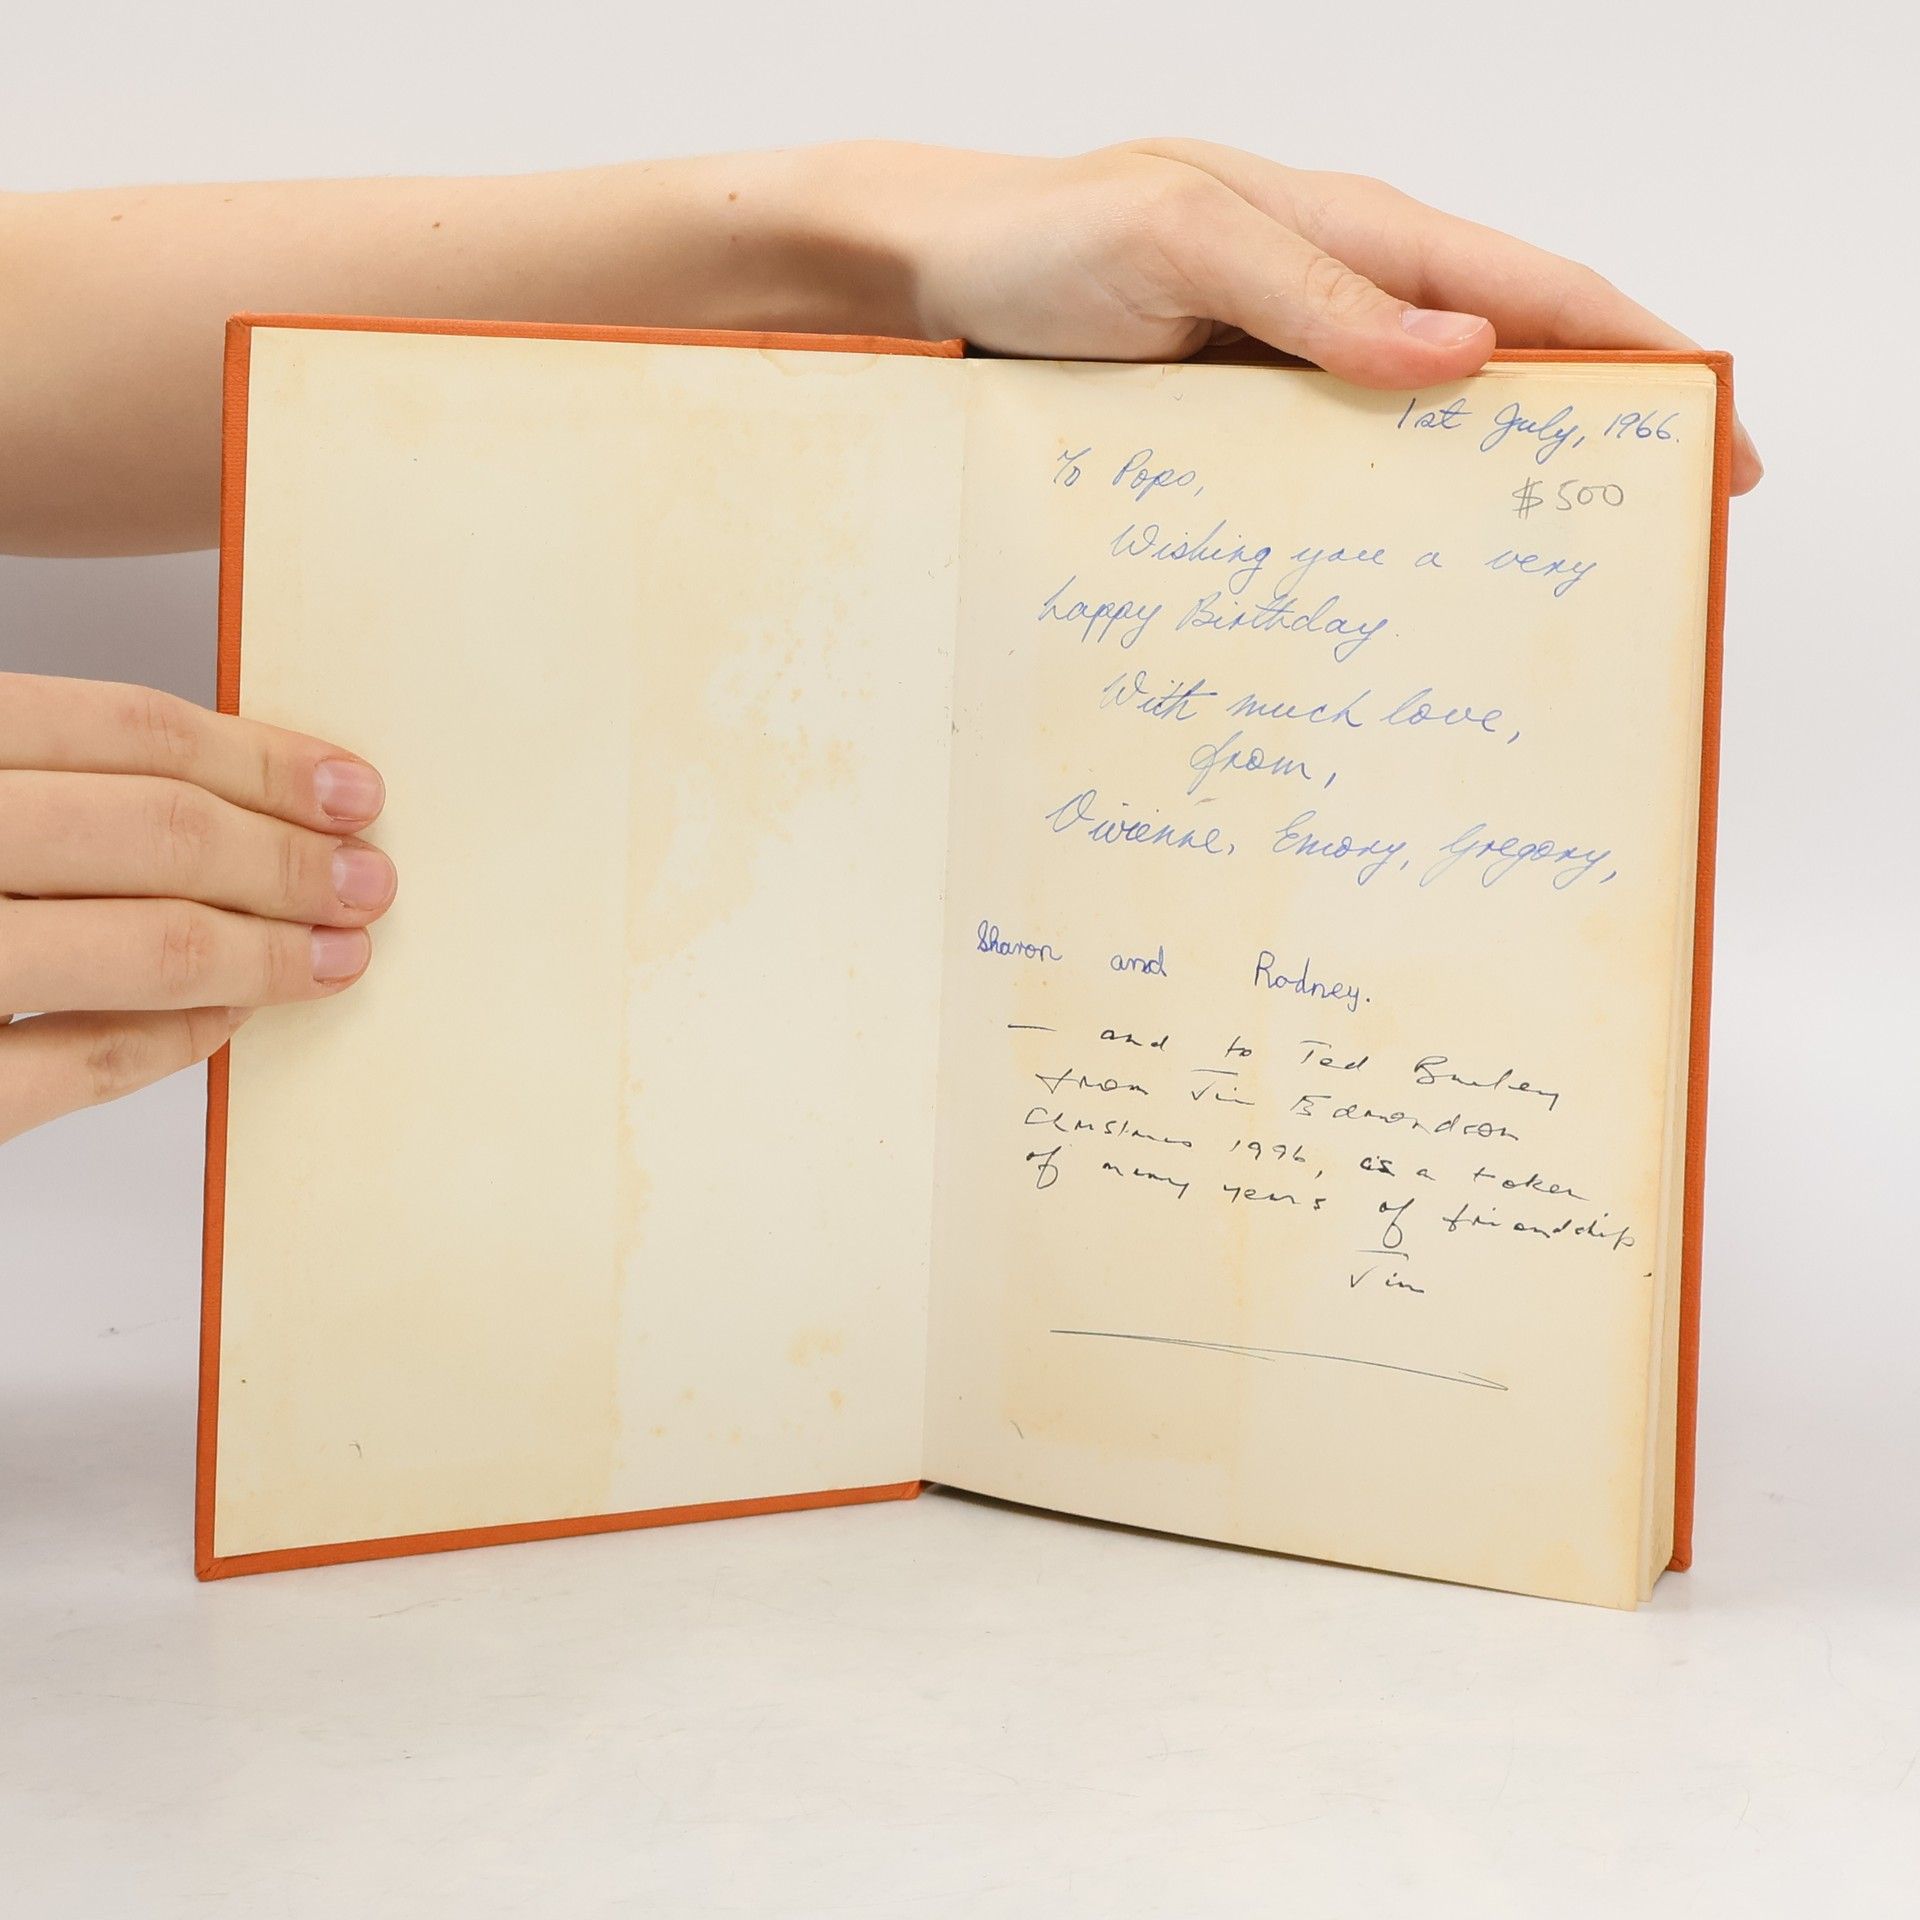 1st July, 1966.
To Pops,
$500
Wishing you a very
happy Birthday.
With much love,
from,
Vivienne, Emory, Gregory,
Sharon and Rodney.
— and to Ted
from Jim Edmondson
Christmas 1996, as a token
of many years of friendship
Jim